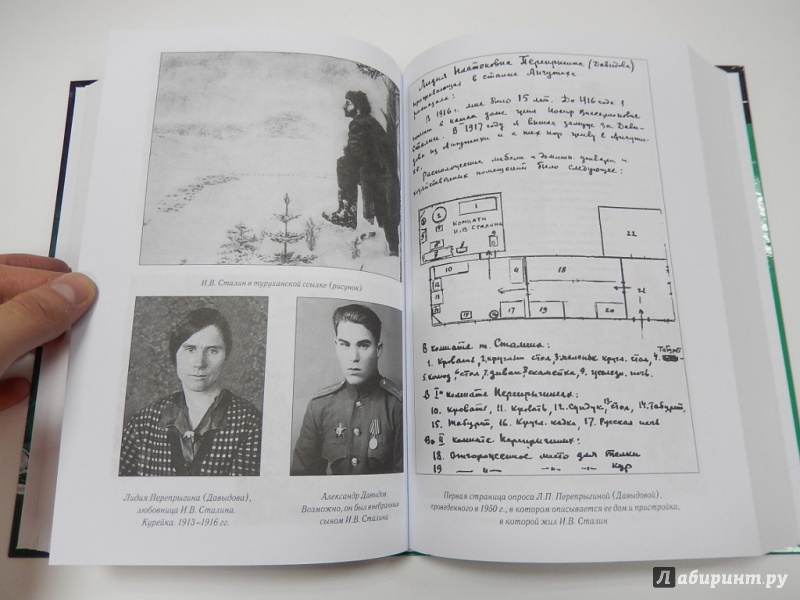 И.В. Сталин в туруханской ссылке (рисунок)
Лидия Перепрыгина (Давыдова),
любовница И.В. Сталина.
Курейка. 1913–1916 гг.
Александр Давыдов.
Возможно, он был внебрачным
сыном И.В. Сталина
Лидия Платоновна Перепрыгина (Давыдова)
проживающая в станке Ангутиха
рассказала:
В 1916 г. мне было 15 лет. До 1916 года в
нашем доме жил Иосиф Виссарионович
Сталин. В 1917 году я вышла замуж за Давы-
дова из Ангутихи и с тех пор живу в Ангути-
хе.
Расположение мебели и домашн. утвари и
помещений было следующее:
1
2
КОМНАТА
И.В. СТАЛИНА
22
10
4
18
17
19
20
21
В комнате т. Сталина:
1. Кровать, 2. круглый стол, 3. маленьк. кругл. стол, 4. Табурт
5. комод, 6. стол, 7. диван, 8. скамейка, 9. железн. печь.
В I комнате Перепрыгиных:
10. Кровать, 11. Кровать, 12. Сундук, 13. стол, 14. Табурт,
15. Табурт, 16. Кругл. кадка, 17. Русская печь
Во II комнате Перепрыгиных:
18. Отгороженное место для телки
19 — „ — — „ — кур
Первая страница опроса Л.П. Перепрыгиной (Давыдовой),
проведенного в 1950 г., в котором описывается ее дом и пристройка,
в которой жил И.В. Сталин
Лабиринт.ру